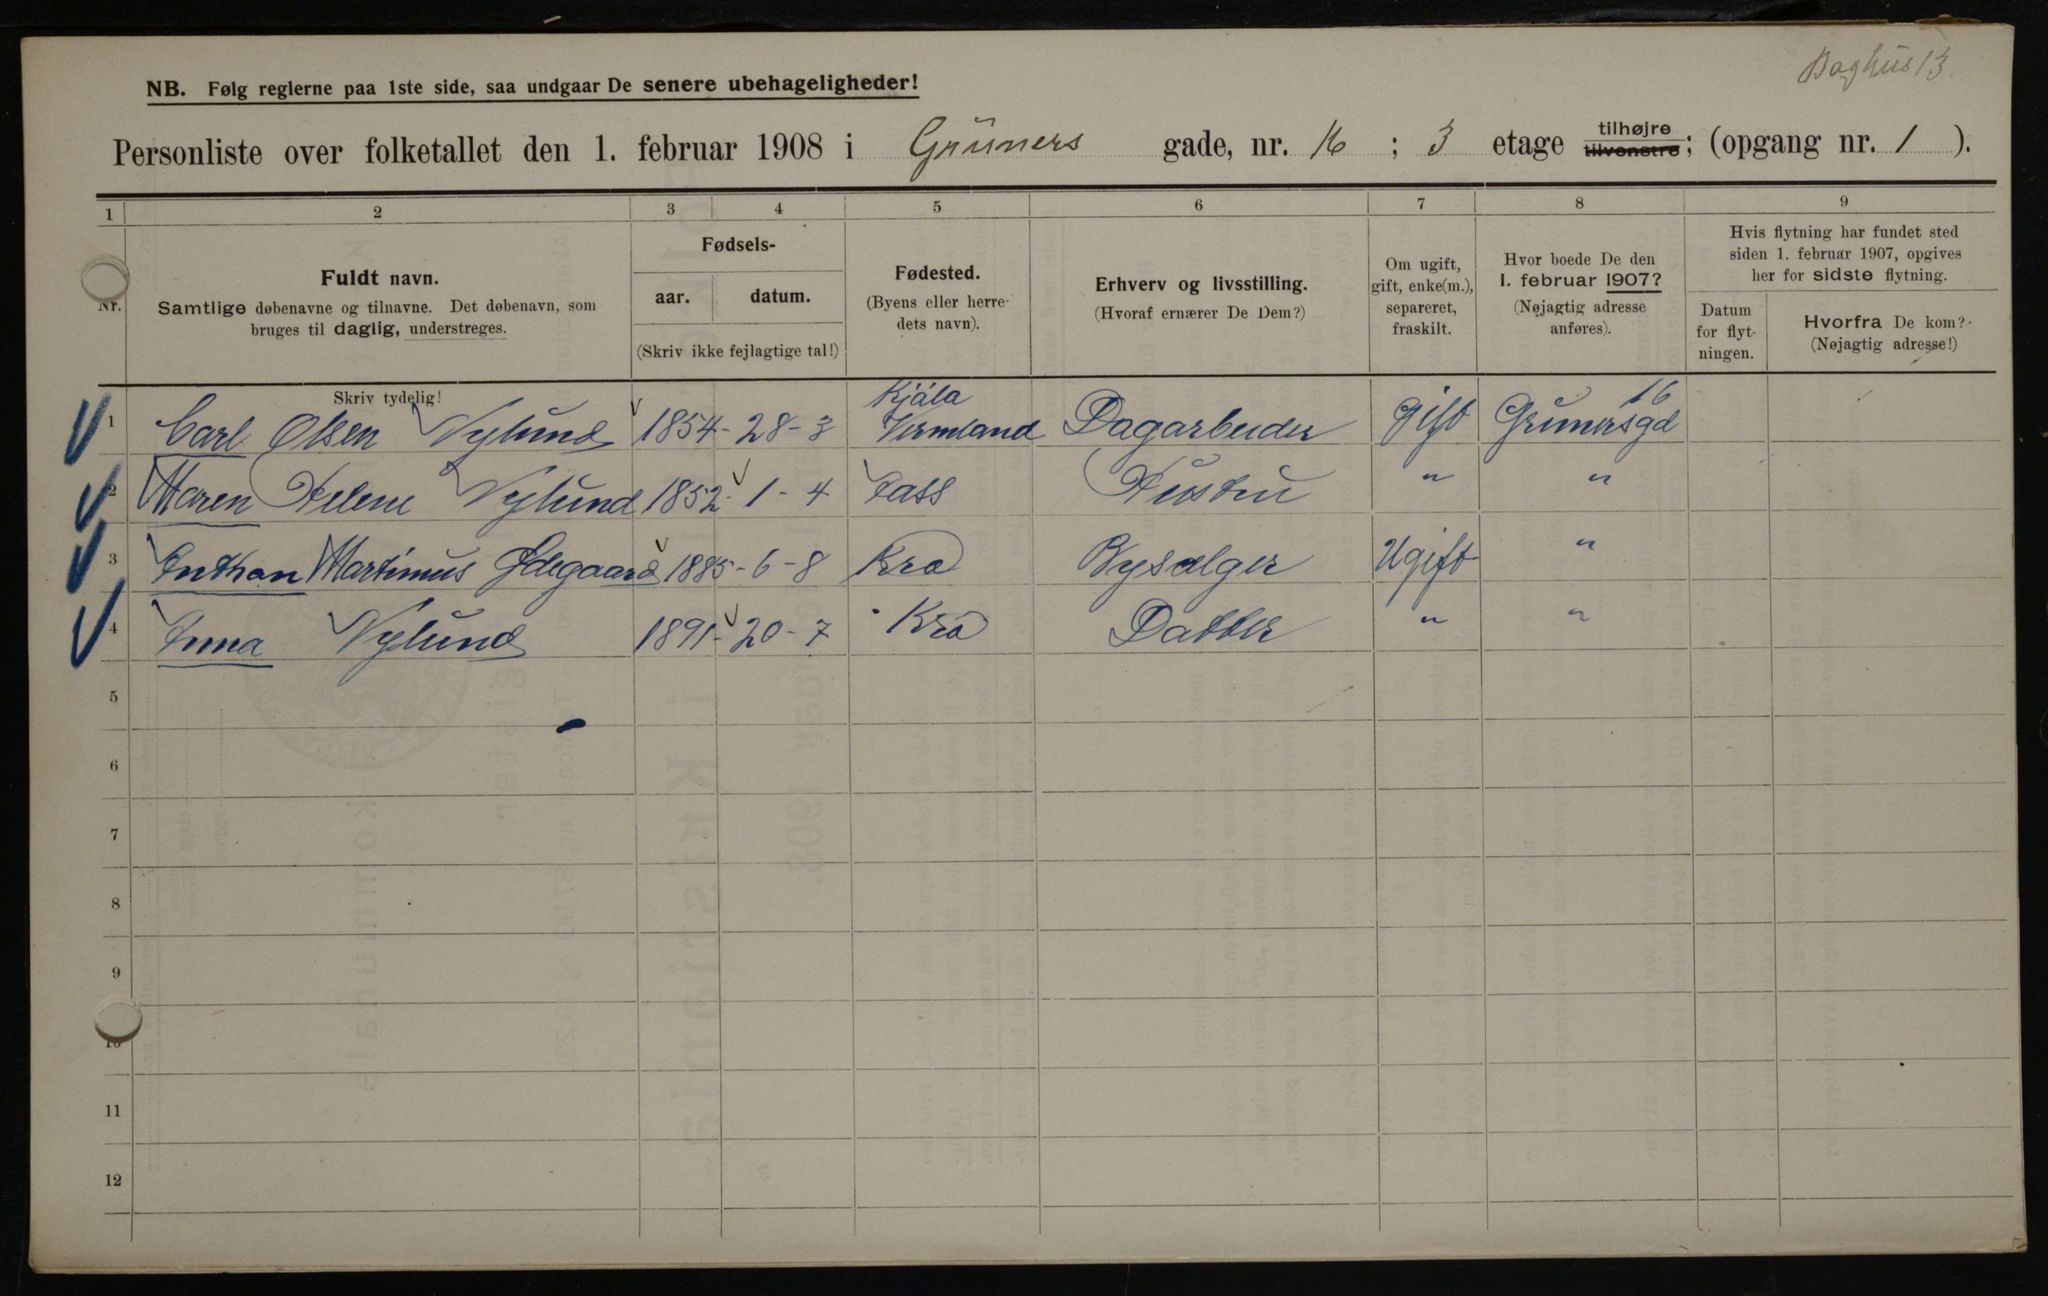 Baghus 13.
NB. Følg reglerne paa 1ste side, saa undgaar De senere ubehageligheder!
Personliste over folketallet den 1. februar 1908 i Grüners gade, nr. 16 ; 3 etage tilhøjre tilvenstre; (opgang nr. 1 ).
1 2 3 4 5 6 7 8 9
Nr.
Fuldt navn.
Samtlige døbenavne og tilnavne. Det døbenavn, som
bruges til daglig, understreges.
Skriv tydelig!
Fødsels-
aar. datum.
(Skriv ikke fejlagtige tal!)
Fødested.
(Byens eller herre-
dets navn).
Erhverv og livsstilling.
(Hvoraf ernærer De Dem?)
Om ugift,
gift, enke(m.),
separeret,
fraskilt.
Hvor boede De den
1. februar 1907?
(Nøjagtig adresse
anføres).
Hvis flytning har fundet sted
siden 1. februar 1907, opgives
her for sidste flytning.
Datum
for flyt-
ningen.
Hvorfra De kom?
(Nøjagtig adresse!)
Kjåla 16
1 Carl Olsen Nylund 1854 - 28 - 3 Vermland Dagarbeider Gift Grunersgd
2 Maren Helene Nylund 1852 - 1 - 4 Hustru " "
3 Martinus Ødegaard 1885 - 6 - 8 Kra Bysælger Ugift "
4 Anna Nylund 1891 - 20 - 7 Kra Datter " "
5
6
7
8
9
10
11
12